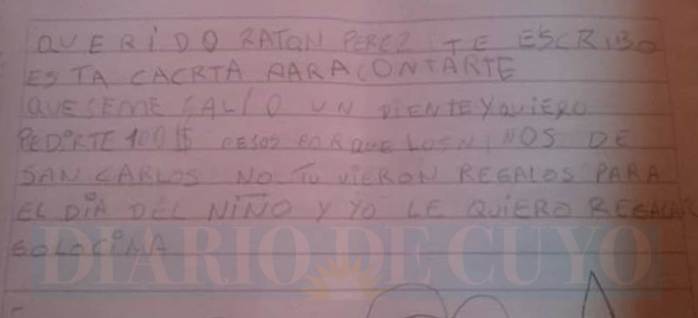 QUERIDO RATON PEREZ TE ESCRIBO
ESTA CACRTA PARA CONTARTE
QUE SEME SALÍO UN DIENTE Y QUIERO
PEDIRTE 100 $ PESOS PORQUE LOS NIÑOS DE
SAN CARLOS NO TU VIERON REGALOS PARA
EL DIA DEL NIÑO Y YO LE QUIERO REGALAR
GOLOCIMA
DIARIO DE CUYO